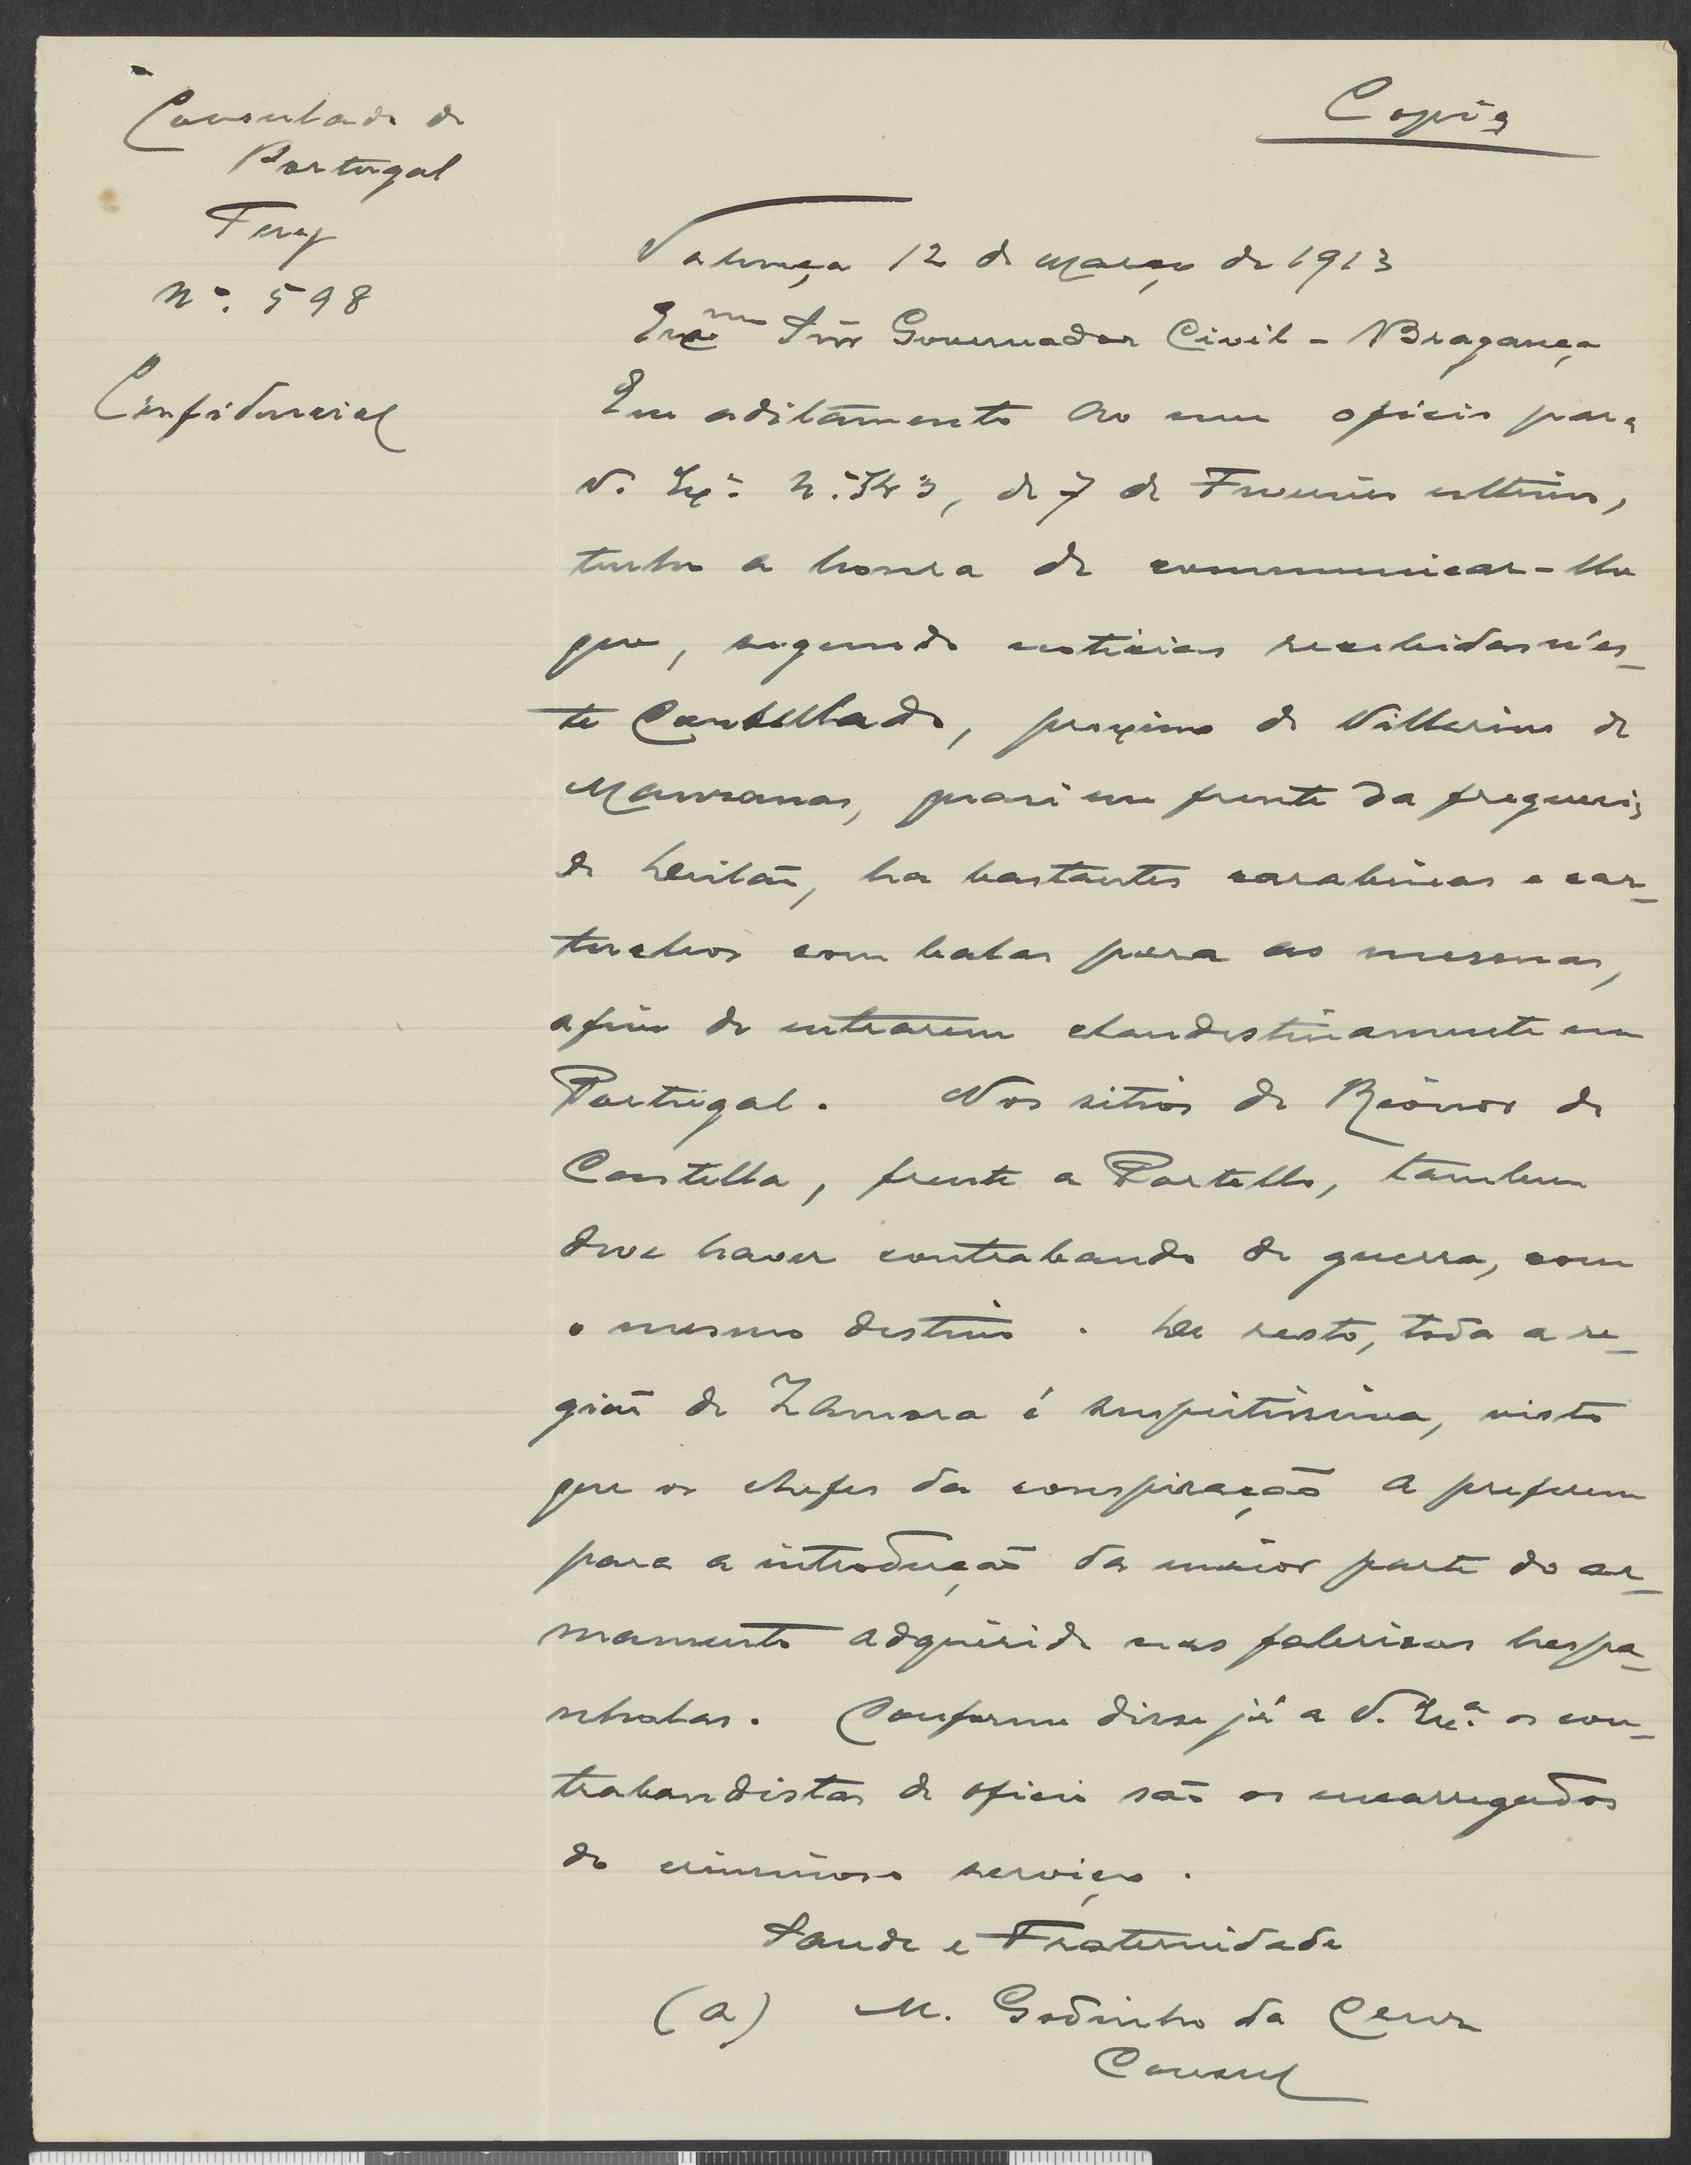 Consulado de
Portugal
Tuy
Nº. 598
Confidencial
Copia
Valença 12 de Março de 1913
Exmo Snr Governador Civil - Bragança
Em aditamento ao meu oficio para
V. Exª. Nº. 343, de 7 de Fevereiro ultimo,
tenho a honra de communicar-lhe
que, segundo noticias recebidas n'es-
te Consullado, proximo de Villarino de
Manzanas, quasi em frente da freguesia
de Deilão, ha bastantes carabinas e car-
tuchos com balas para as mesmas,
afim de entrarem clandestinamente em
Portugal. Nos sitios de Rionor de
Castella, frente a Portello, tambem
deve haver contrabando de guerra, com
o mesmo destino. De resto, toda a re-
gião de Zamora é suspeitissima, visto
que os chefes da conspiração a preferem
para a introdução da maior parte do ar-
mamento adquirido nas fabricas hespa-
nholas. Conforme disse já a V. Exª. os con-
trabandistas de oficio são os encarregados
do criminoso serviço.
Saude e Fraternidade
(a) M. Godinho da
Consul